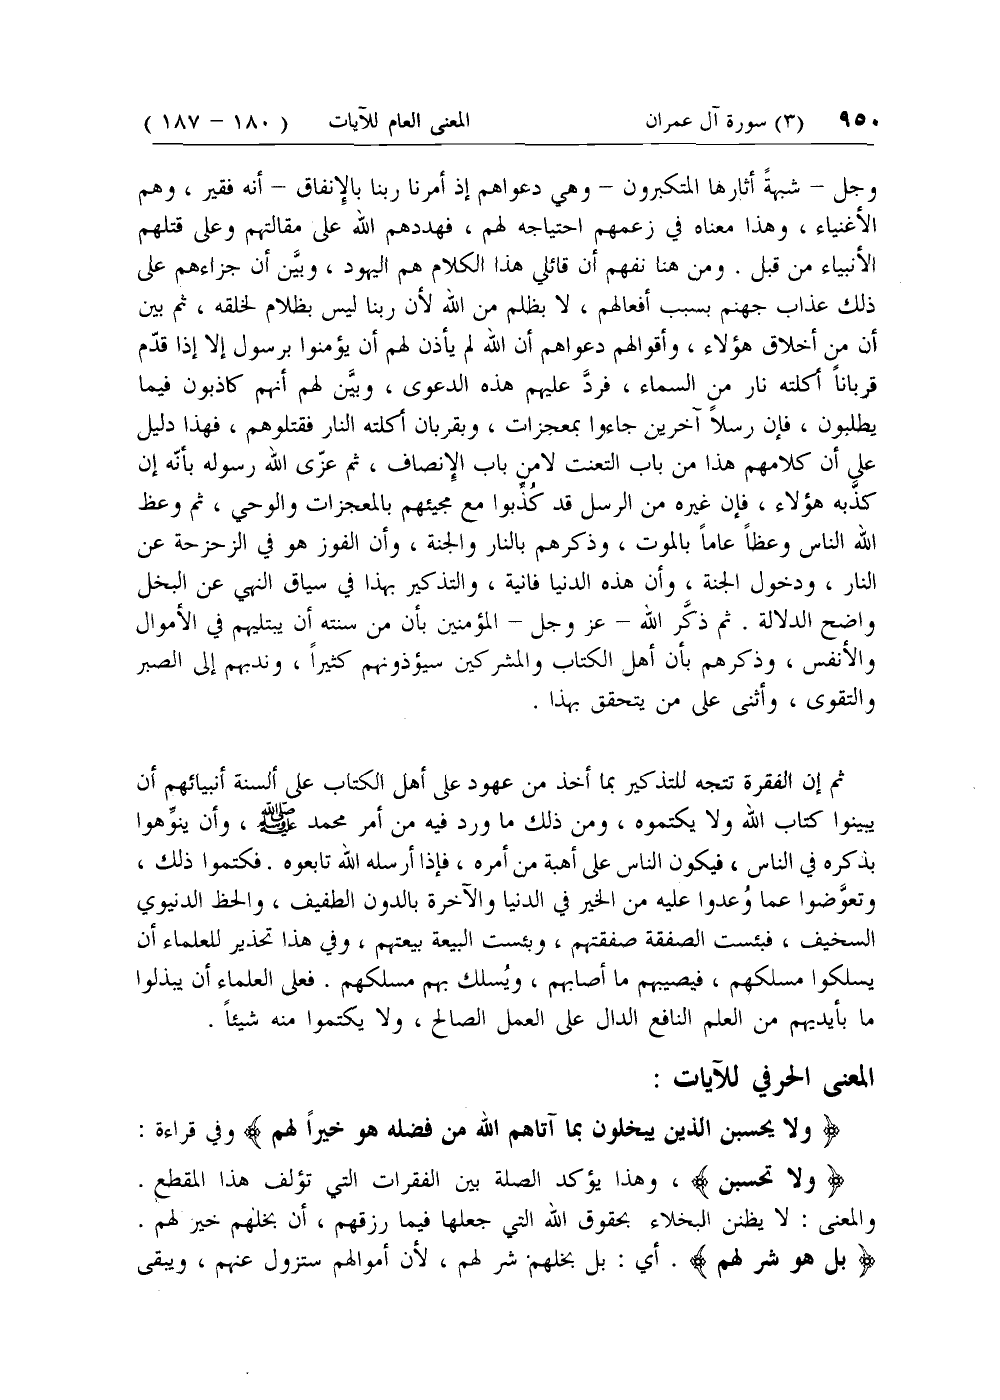 ٩٥٠ (٣) سورة آل عمران المعنى العام للآيات ( ١٨٠ – ١٨٧ )
وجل – شبهةً أثارها المتكبرون – وهي دعواهم إذ أمرنا ربنا بالإنفاق – أنه فقير ، وهم
الأغنياء ، وهذا معناه في زعمهم احتياجه لهم ، فهددهم الله على مقالتهم وعلى قتلهم
الأنبياء من قبل . ومن هنا نفهم أن قائلي هذا الكلام هم اليهود ، وبيَّن أن جزاءهم على
ذلك عذاب جهنم بسبب أفعالهم ، لا بظلم من الله لأن ربنا ليس بظلام لخلقه ، ثم بين
أن من أخلاق هؤلاء ، وأقوالهم دعواهم أن الله لم يأذن لهم أن يؤمنوا برسول إلا إذا قدّم
قرباناً أكلته نار من السماء ، فردَّ عليهم هذه الدعوى ، وبيَّن لهم أنهم كاذبون فيما
يطلبون ، فإن رسلاً آخرين جاءوا بمعجزات ، وبقربان أكلته النار فقتلوهم ، فهذا دليل
على أن كلامهم هذا من باب التعنت لامن باب الإنصاف ، ثم عزّى الله رسوله بأنّه إن
كذَّبه هؤلاء ، فإن غيره من الرسل قد كُذِّبوا مع مجيئهم بالمعجزات والوحي ، ثم وعظ
الله الناس وعظاً عاماً بالموت ، وذكرهم بالنار والجنة ، وأن الفوز هو في الزحزحة عن
النار ، ودخول الجنة ، وأن هذه الدنيا فانية ، والتذكير بهذا في سياق النهي عن البخل
واضح الدلالة . ثم ذكَّر الله – عز وجل – المؤمنين بأن من سنته أن يبتليهم في الأموال
والأنفس ، وذكرهم بأن أهل الكتاب والمشركين سيؤذونهم كثيراً ، وندبهم إلى الصبر
والتقوى ، وأثنى على من يتحقق بهذا .
ثم إن الفقرة تتجه للتذكير بما أخذ من عهود على أهل الكتاب على ألسنة أنبيائهم أن
يبينوا كتاب الله ولا يكتموه ، ومن ذلك ما ورد فيه من أمر محمد ﷺ ، وأن ينوِّهوا
بذكره في الناس ، فيكون الناس على أهبة من أمره ، فإذا أرسله الله تابعوه . فكتموا ذلك ،
وتعوَّضوا عما وُعدوا عليه من الخير في الدنيا والآخرة بالدون الطفيف ، والحظ الدنيوي
السخيف ، فبئست الصفقة صفقتهم ، وبئست البيعة بيعتهم ، وفي هذا تحذير للعلماء أن
يسلكوا مسلكهم ، فيصيبهم ما أصابهم ، ويُسلك بهم مسلكهم . فعلى العلماء أن يبذلوا
ما بأيديهم من العلم النافع الدال على العمل الصالح ، ولا يكتموا منه شيئاً .
المعنى الحرفي للآيات :
﴿ ولا يحسبن الذين يبخلون بما آتاهم الله من فضله هو خيراً لهم ﴾ وفي قراءة :
﴿ ولا تحسبن ﴾ ، وهذا يؤكد الصلة بين الفقرات التي تؤلف هذا المقطع .
والمعنى : لا يظنن البخلاء بحقوق الله التي جعلها فيما رزقهم ، أن بخلهم خير لهم .
﴿ بل هو شر لهم ﴾ . أي : بل بخلهم شر لهم ، لأن أموالهم ستزول عنهم ، ويبقى